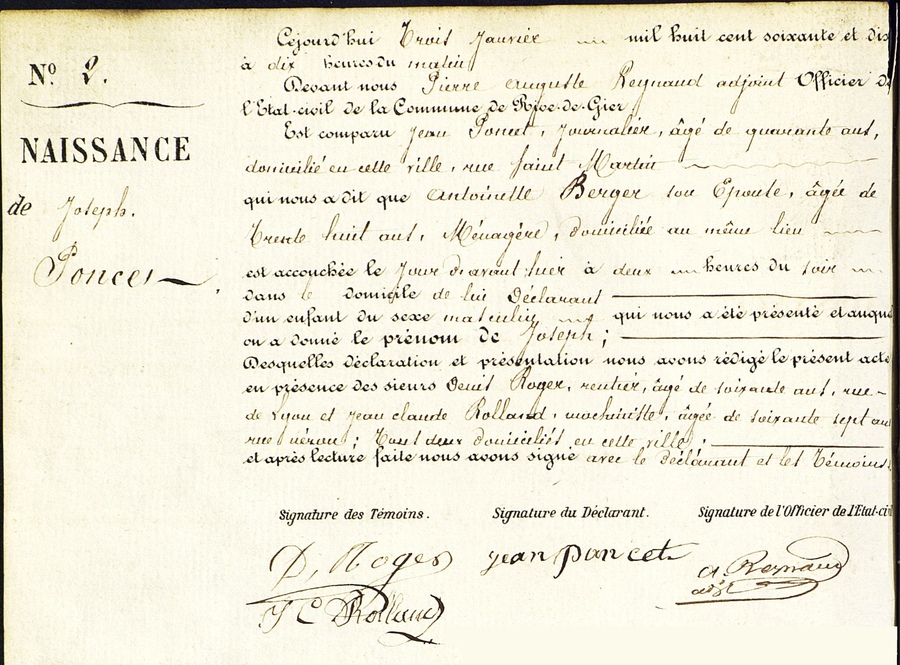 N.º 2.
NAISSANCE
de Joseph.
Poncet
Cejourd'hui Trois Janvier mil huit cent soixante et dix
à dix heures du matin
Devant nous Pierre auguste Reynaud adjoint Officier de
l'Etat-civil de la Commune de Rive-de-Gier,
Est comparu Jean Poncet, Journalier, âgé de quarante ans,
domicilié en cette ville, rue Saint Martin
qui nous a dit que Antoinette Berger son Epouse, âgée de
Trente huit ans, Ménagère, domiciliée au même lieu
est accouchée le jour d'avant hier à deux heures du soir
dans le domicile de lui Déclarant
d'un enfant du sexe masculin qui nous a été présenté et auquel
on a donné le prénom de Joseph;
Desquelles déclaration et présentation nous avons rédigé le présent acte
en présence des sieurs Denis Roger, rentier, âgé de soixante ans, rue
de Lyon et Jean claude Rolland, machiniste, âgée de soixante sept ans
rue néron; Tous deux domiciliés en cette ville,
et après lecture faite nous avons signé avec le déclarant et les Témoins.
Signature des Témoins. Signature du Déclarant. Signature de l'Officier de l'Etat-civ
D, Roger jean poncet A. Reynaud
adjt
J C Rolland